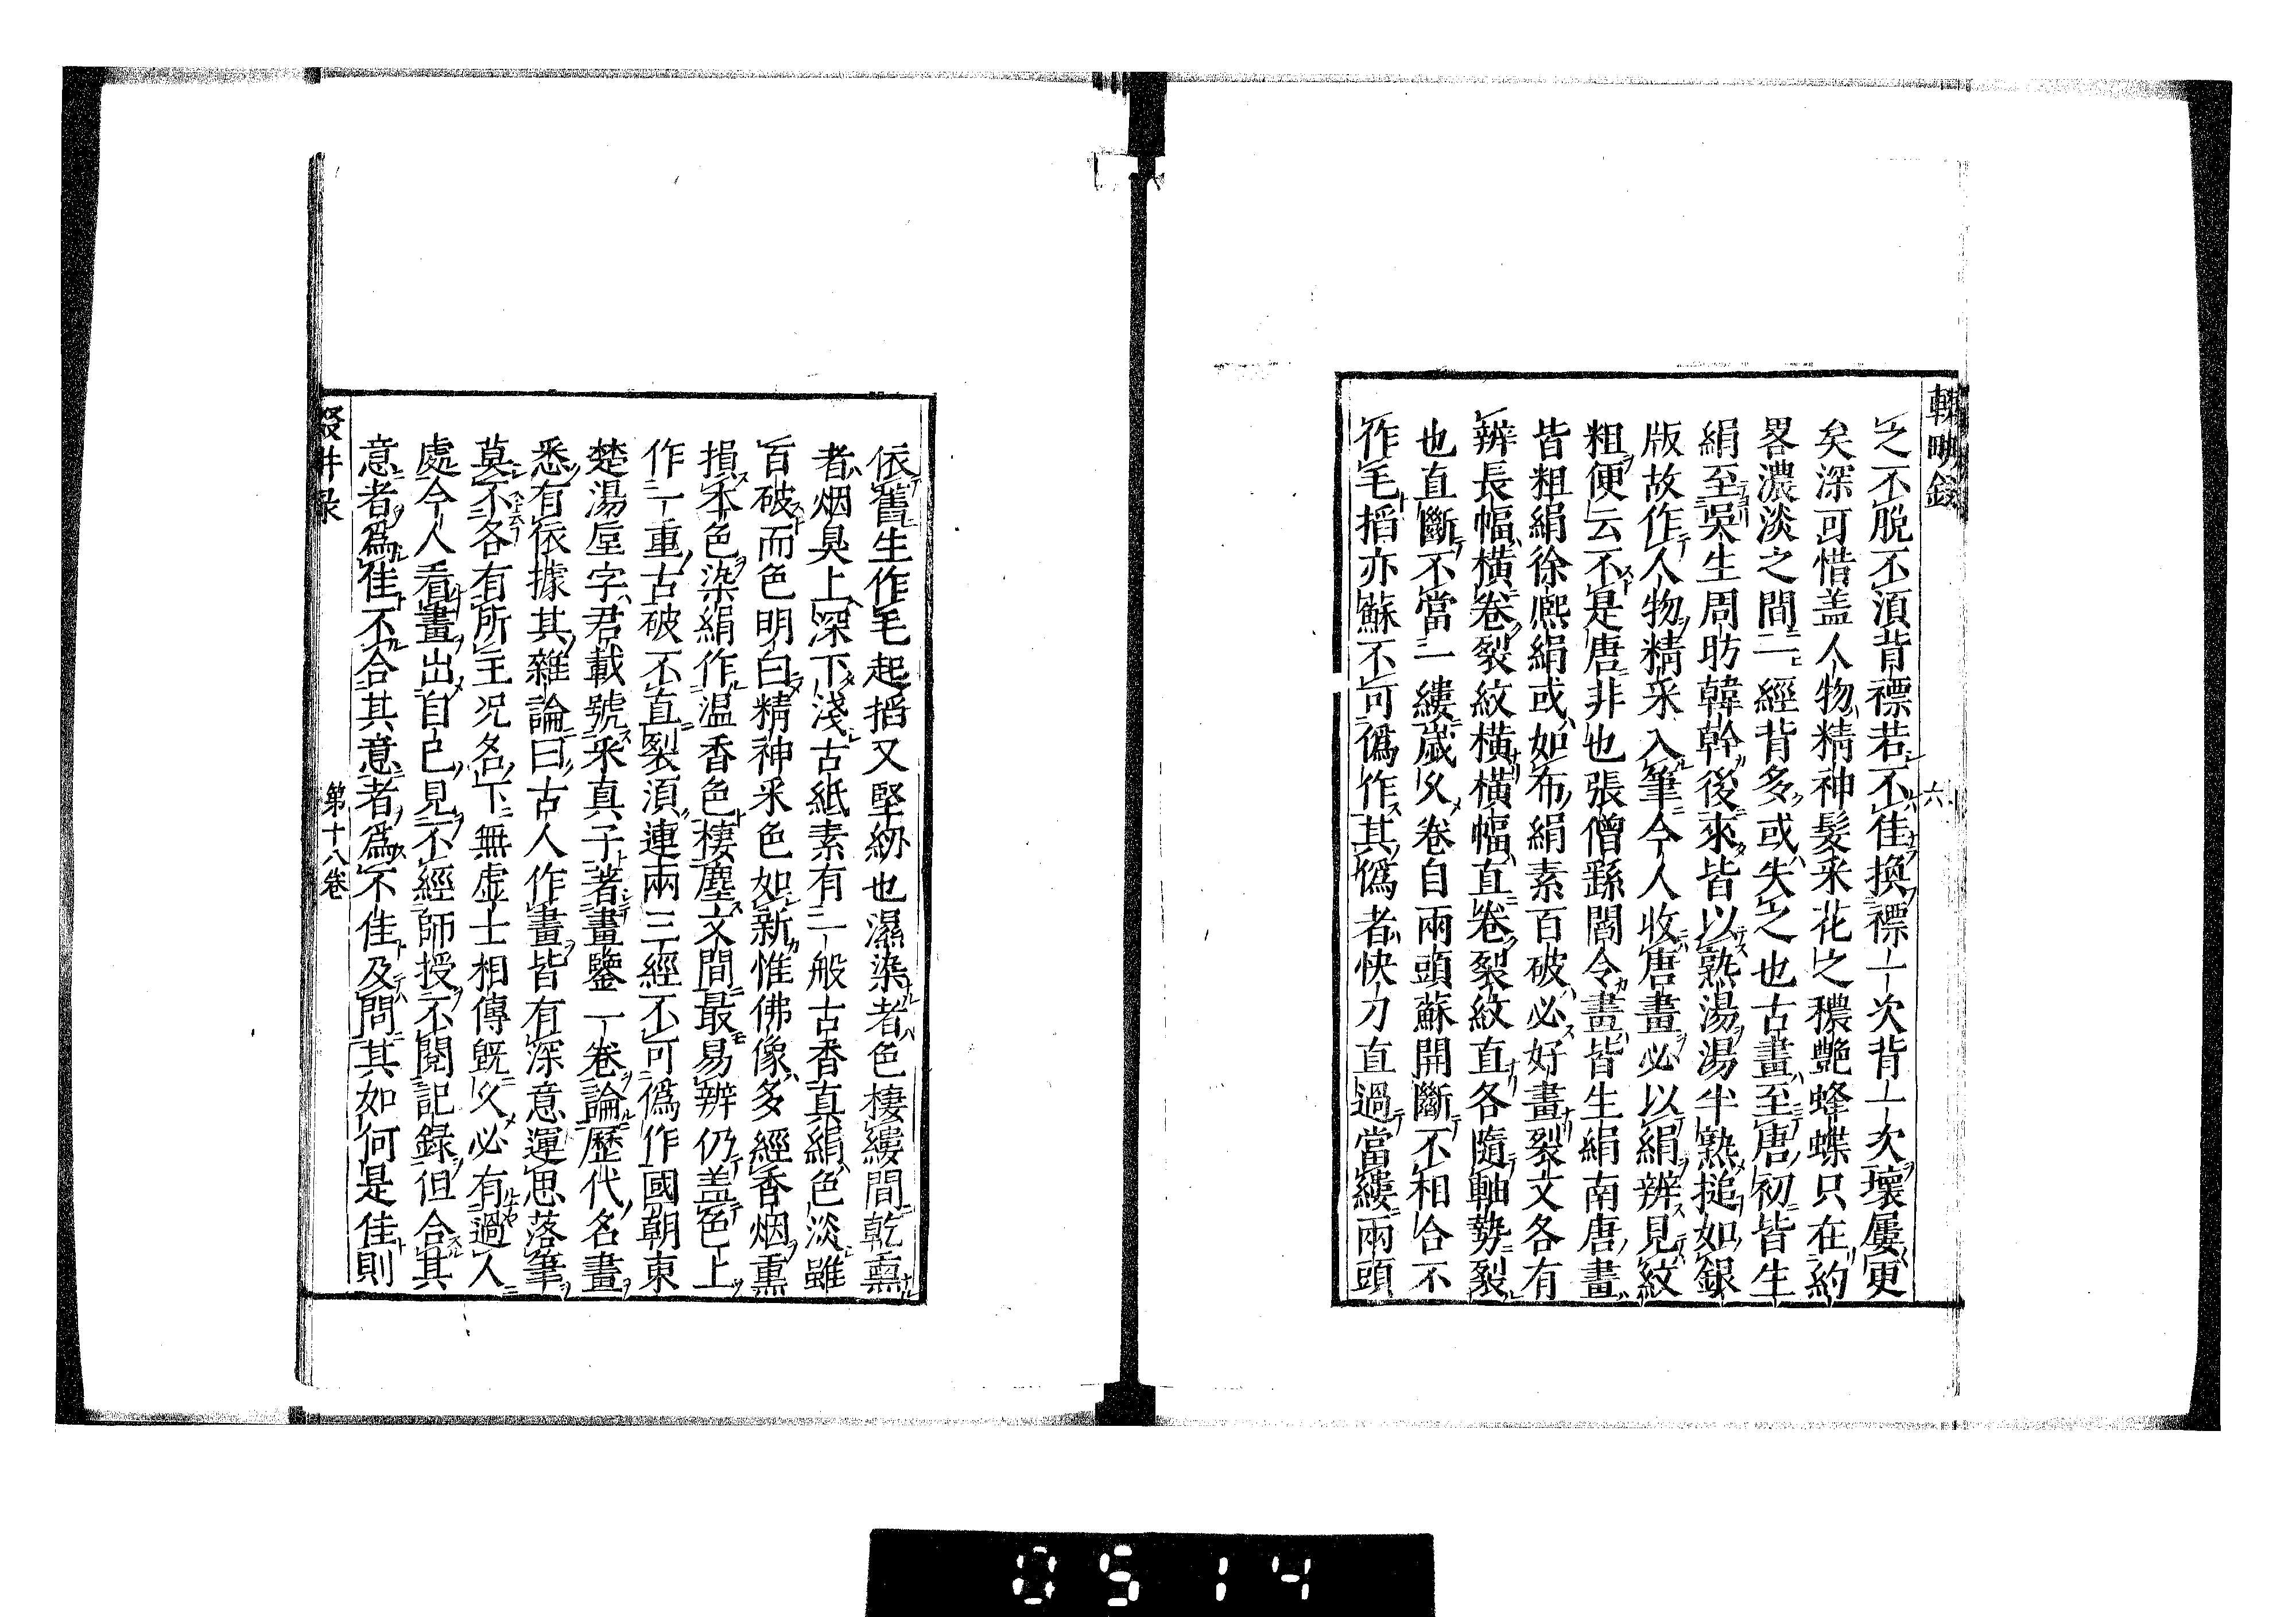 輟畊錄
六
之不脫不須背褾若不佳換褾一次背一次壞屢更
矣深可惜盖人物精神髮采花之穠艷蜂蝶只在約
畧濃淡之間二經背多或失之也古畫至唐初皆生
絹至吳生周昉韓幹後來皆以熟湯湯半熟搥如銀
版故作人物精采入筆今人收唐畫必以絹辨見紋
粗便云不是唐非也張僧繇閻令畫皆生絹南唐畫
皆粗絹徐熈絹或如布絹素百破必好畫裂文各有
辨長幅橫卷裂紋橫橫幅直卷裂紋直各隨軸勢裂
也直斷不當一縷歲久卷自兩頭蘇開斷不相合不
作毛搯亦蘇不可僞作其僞者快刀直過當縷兩頭
依舊生作毛起搯又堅紉也濕染者色棲縷間乾熏
者烟臭上深下淺古紙素有一般古香真絹色淡雖
百破而色明白精神采色如新惟佛像多經香烟熏
損本色染絹作温香色棲塵文間最易辨仍盖色上
作一重古破不直裂須連兩三經不可僞作國朝東
楚湯垕字君載號采真子著畫鑒一卷論歷代名畫
悉有依據其雜論曰古人作畫皆有深意運思落筆
莫不各有所主况名下無虛士相傳旣久必有過人
處今人看畫出自已見不經師授不閱記錄但合其
意者爲佳不合其意者爲不佳及問其如何是佳則
第十八卷
0514